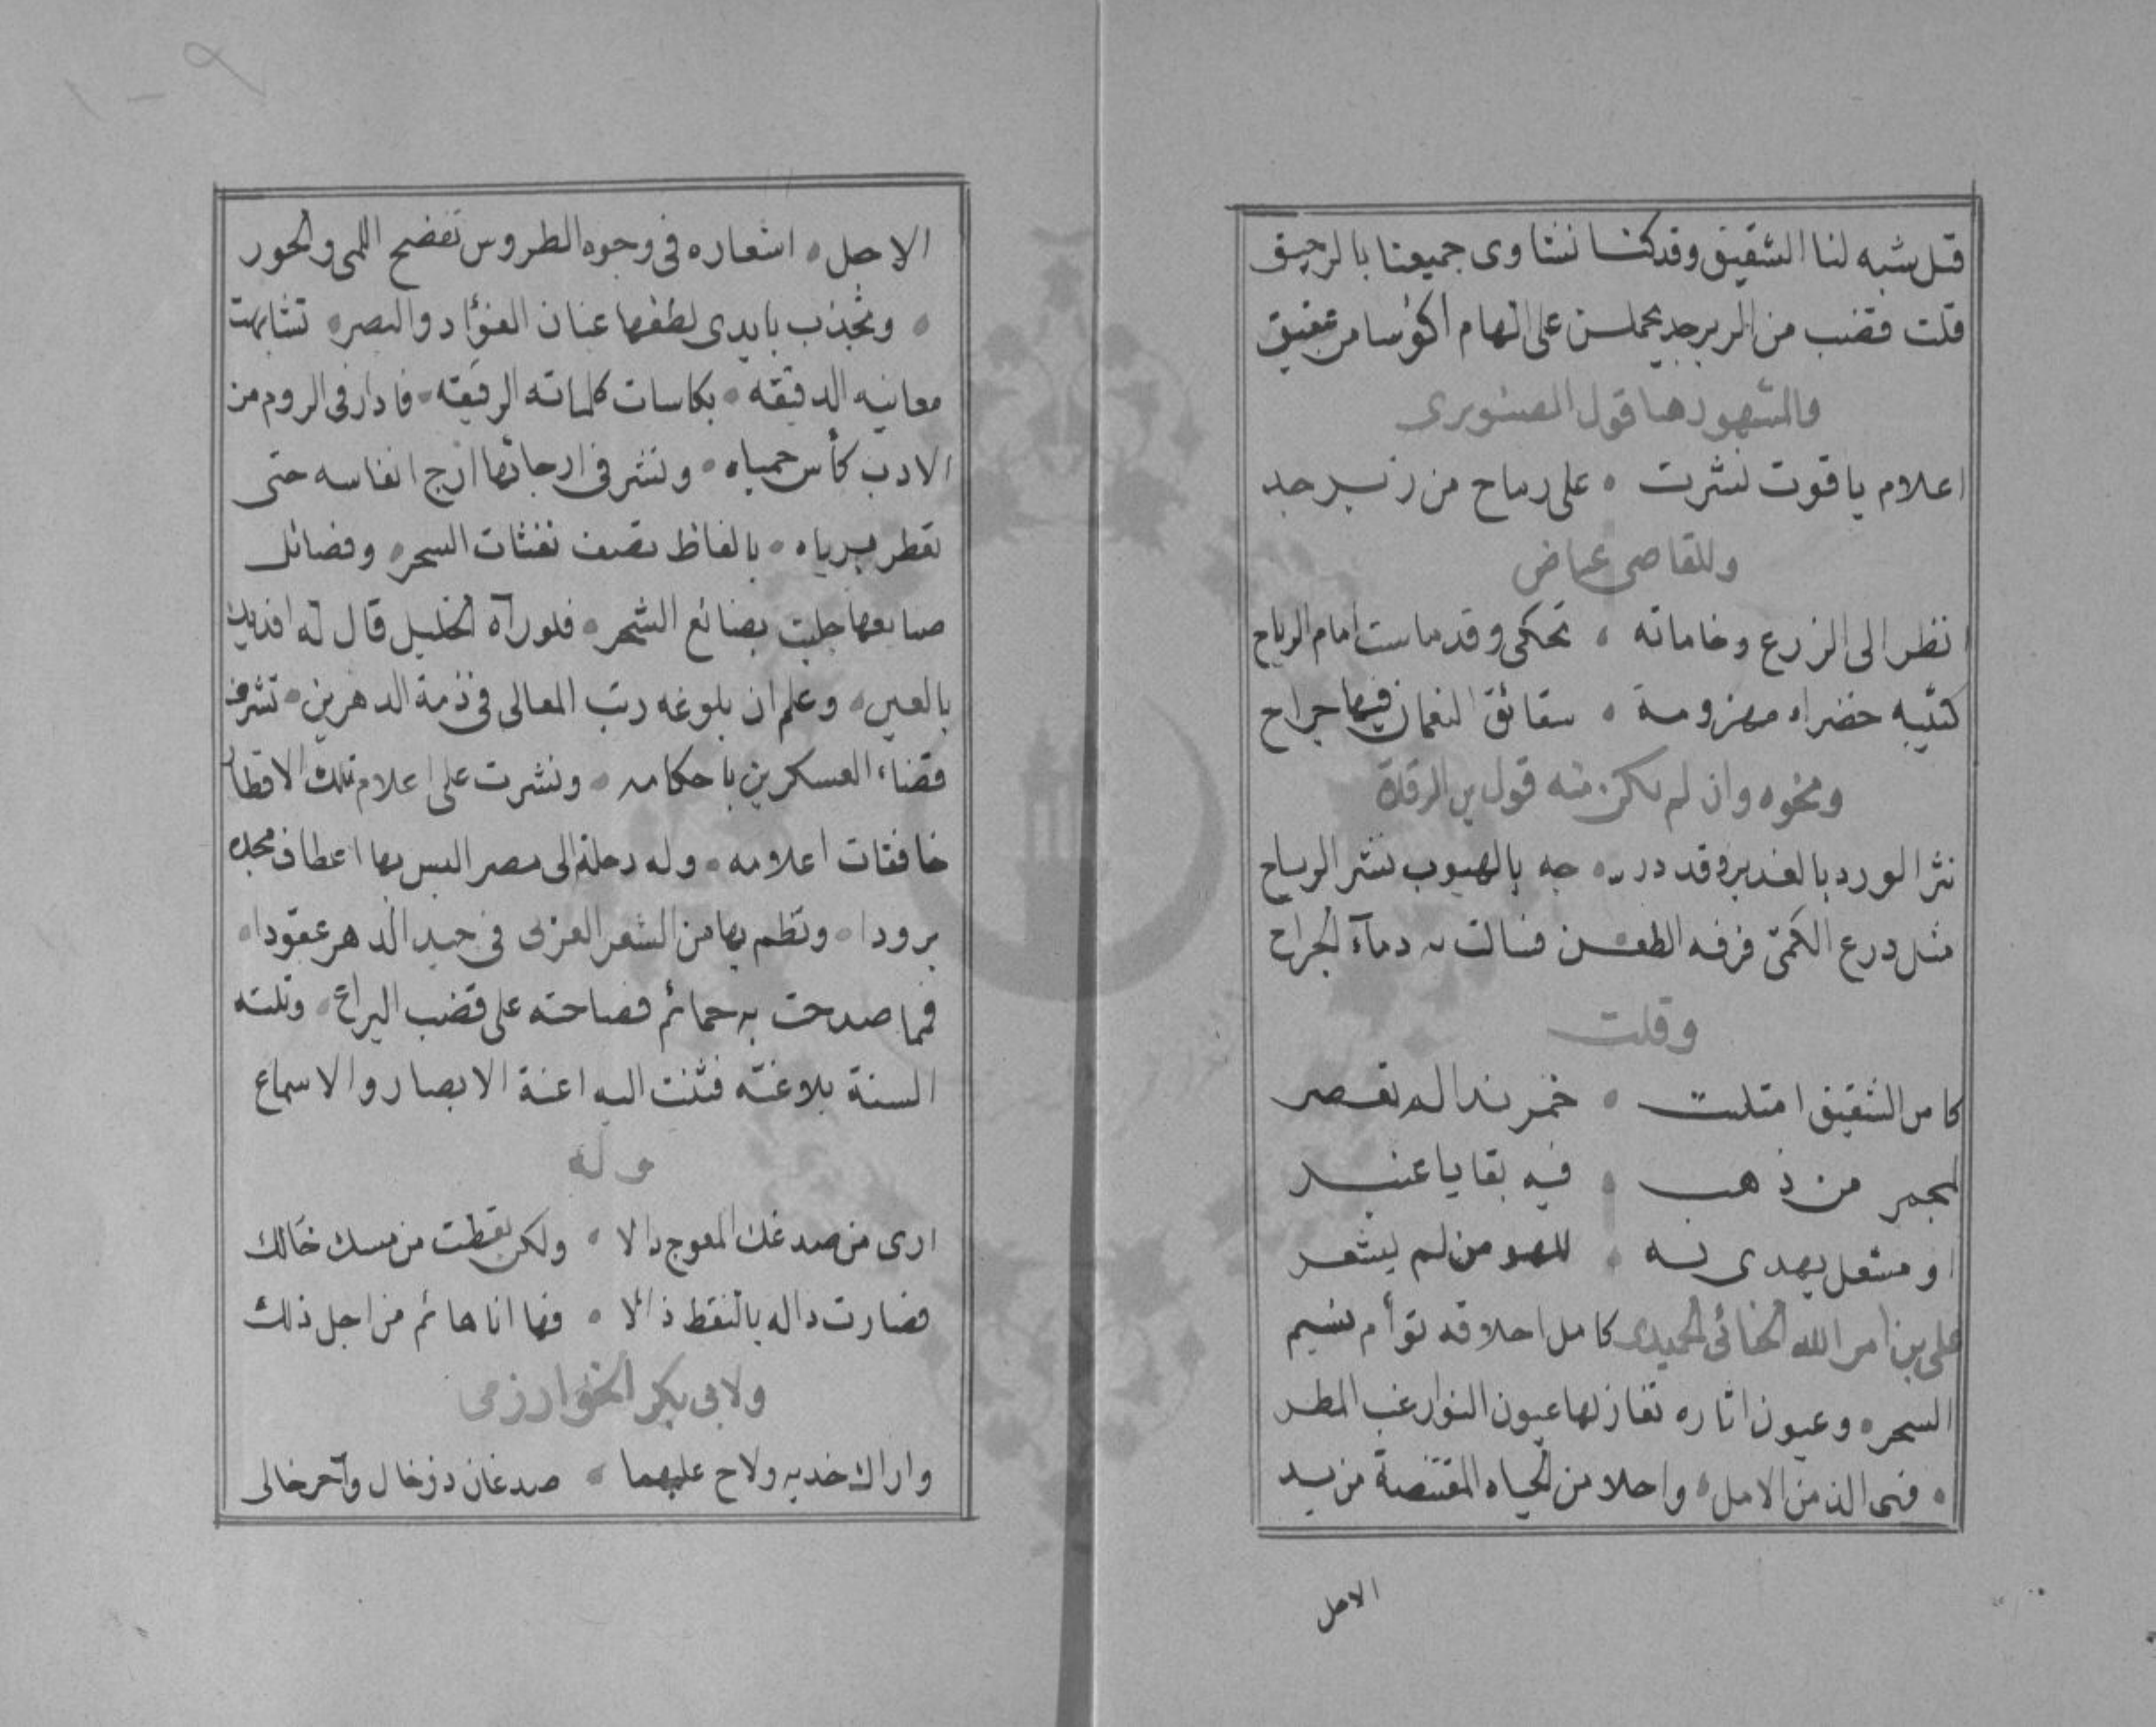 قيل شبه لنا الشقيق وقد كنا نشاوى جميعنا بالرحيق
قلت قضب من الزبرجد يحملن على الهام اكؤسا من عقيق
والمشهور هنا قول الصنوبرى
اعلام ياقوت نشرت • على رماح من زبرجد
وللقاضى عياض
انظر الى الزرع وخاماته • تحكى وقد ماست امام الرياح
كتيبه خضراء مهزومة • شقائق النعمان فيها جراح
ونحوه وان لم يكن منه قول بن الرقاة
نثر الورد بالغدير وقد در • جه بالهبوب نشر الرياح
مثل درع الكمىّ مزقه الطعن فسالت به دمآء الجراح
وقلت
كاس الشقيق امتلت • خمر ندا لم تعصر
كمجمر من ذهب • فيه بقايا عنبر
او مشعل يهدى به • للهو من لم يشعر
على بن امر الله الحنائى الحميدى كامل اخلاقه توأم نسيم
السحر • وعيون اثاره تغازلها عيون النوار غب المطر
• فهى الذ من الامل • واحلا من الحياه المقتنصة من يد
الاجل
الاجل • اشعاره فى وجوه الطروس تفضح اللمى والحور
• وتجذب بايدى لطفها عنان الفؤاد والبصر • تشابهت
معانيه الدقيقه • بكاسات كلماته الرقيقه • فادار فى الروم من
الادب كأس حمياه • ونشر فى ارجائها ارج انفاسه حتى
تعطر برياه • بالفاظ تصف نفثات السحر • وفضائل
صنايعها جلبت بضائع الشحر • فلو رآه الخليل قال له افديك
بالعين • وعلم ان بلوغه رتب المعالى فى ذمة الدهر دين • تشرف
قضاء العسكرين باحكامه • ونشرت على اعلام تلك الاقطار
خافقات اعلامه • وله رحلة الى مصر البس بها اعطاف مجده
برودا • ونظم بها من الشعر العربى فى جيد الدهر عقودا •
فما صدحت به حمائم فصاحته على قضب اليراع • وتلته
السنة بلاغته فثنت اليه اعنة الابصار والاسماع
وله
ارى من صدغك المعوج دالا • ولكن نقطت من مسك خالك
فصارت داله بالنقط ذالا • فها انا هائم من اجل ذلك
ولابى بكر الخوارزمى
واراك خديه ولاح عليهما • صدغان ذو خال وآخر خالى